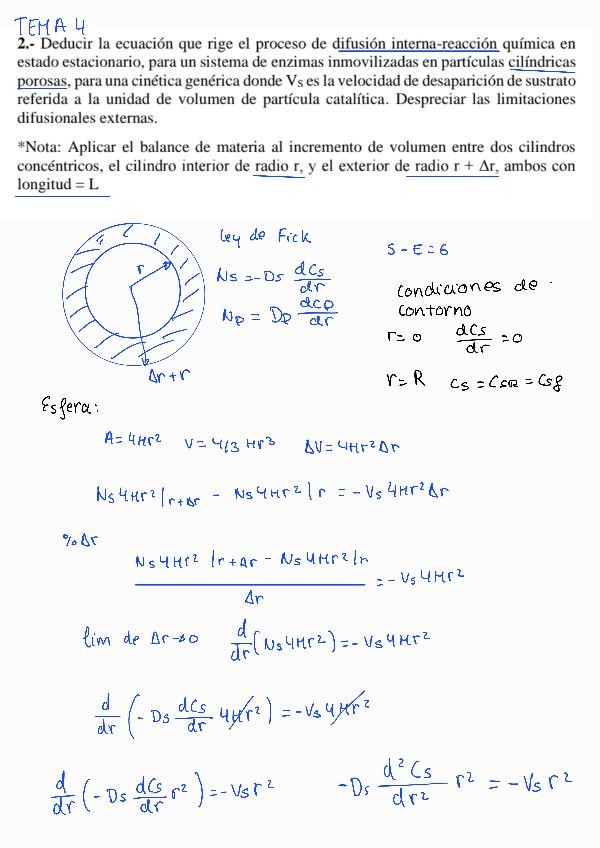 TEMA 4
2.- Deducir la ecuación que rige el proceso de difusión interna-reacción química en
estado estacionario, para un sistema de enzimas inmovilizadas en partículas cilíndricas
porosas, para una cinética genérica donde VS es la velocidad de desaparición de sustrato
referida a la unidad de volumen de partícula catalítica. Despreciar las limitaciones
difusionales externas.
*Nota: Aplicar el balance de materia al incremento de volumen entre dos cilindros
concéntricos, el cilindro interior de radio r, y el exterior de radio r + Δr, ambos con
longitud = L
Ley de Fick
S - E = G
r
Ns = -Ds dCs/dr
Condiciones de
contorno
Np = Dp dCp/dr
r = 0 dCs/dr = 0
Δr + r
r = R Cs = CsR = Csf
Esfera:
A = 4πr² V = 4/3 πr³ ΔV = 4πr²Δr
Ns4πr²|r+Δr - Ns4πr²|r = -Vs4πr²Δr
% Δr
(Ns4πr²|r+Δr - Ns4πr²|r)/Δr = -Vs4πr²
lim de Δr→0 d/dr (Ns4πr²) = -Vs4πr²
d/dr (-Ds dCs/dr 4πr²) = -Vs4πr²
d/dr (-Ds dCs/dr r²) = -Vsr² -Ds d²Cs/dr² r² = -Vsr²